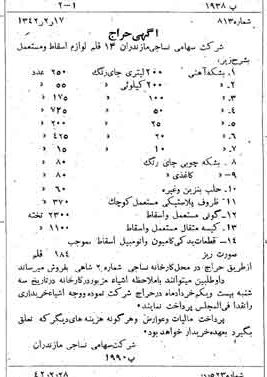 ب ۱۹۳۸ ۲-۱
شماره ۸۱۳ ۱۳۴۲ر۲ر۱۷
آگهی حراج
شرکت سهامی نساجی مازندران ۱۳ قلم لوازم اسقاط و مستعمل
بشرح زیر:
۱- بشکه آهنی ۲۰۰ لیتری جای رنگ ۲۵۰ عدد
۲- » ۲۰۰ کیلوئی » ۵۵ »
۳- » ۱۰۰ » » ۱۷۵ »
۴- » ۵۰ » » ۷۲۵ »
۵- » ۲۰ » » ۴۲۵ »
۶- » ۱۰ » » ۱۰ »
۷- » ۲۰۰ » » ۱۵ »
۸- بشکه چوبی جای رنگ ۸۰ »
۹- » کاغذی » ۸۰ »
۱۰- حلب بنزین وغیره ۶۰ »
۱۱- ظروف پلاستیکی مستعمل کوچک ۳۷۰ »
۱۲- گونی مستعمل واسقاط ۲۳۰۰ تخته
۱۳- کیسه متقال مستعمل واسقاط ۱۱۰۰ »
۱۴- قطعات یدکی کامیون واتومبیل اسقاط بموجب
صورت ریز ۱۸۴ قلم
از طریق حراج در محل کارخانه نساجی شماره ۲ شاهی بفروش میرساند
داوطلبین میتوانند باملاحظه اشیاء مزبور در کارخانه در تاریخ سه
شنبه بیست ویکم خردادماه در حراج شرکت نموده ووجه اشیاء خریداری
را نقدا فی المجلس پرداخت نمایند.
پرداخت مالیات وعوارض وهرگونه هزینه های دیگر که تعلق
بگیرد بعهده خریدار خواهد بود.
شرکت سهامی نساجی مازندران
ب ۱۹۹۰